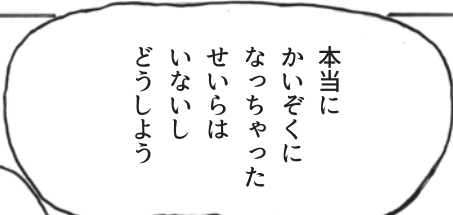 本当に
かいぞくに
なっちゃった
せいらは
いないし
どうしよう